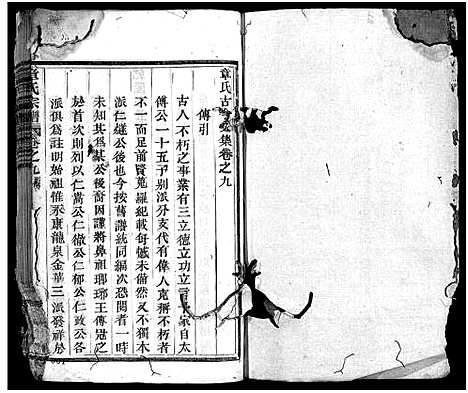 章氏古今文集卷之九
傳引
古人不朽之事業有三立德立功立言予家自太
傅公一十五子別派外支代有偉人克稱不朽者
不一而足前賢蒐羅紀載每爐未備然又不獨木
派仁嵩公後也今按舊譜統同編次恐閱者一時
未知其為某公後裔因謹將鼻祖瑯琊王傳冠之
於首次則列以仁嵩公仁徹公仁郁公仁政公各
派俱為註明始祖惟永康龍泉金華三派發祥於
章氏宗譜 卷之九